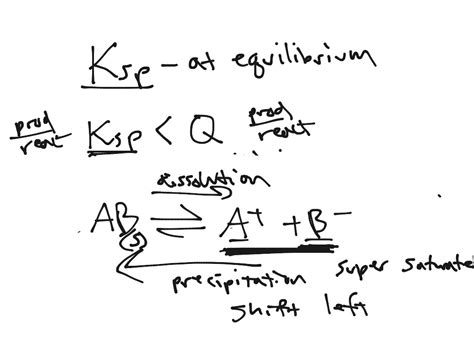 Ksp - at equilibrium
prod/react Ksp < Q prod/react
dissolution
AB(s) ⇌ A+ + B-
precipitation super saturate
shift left